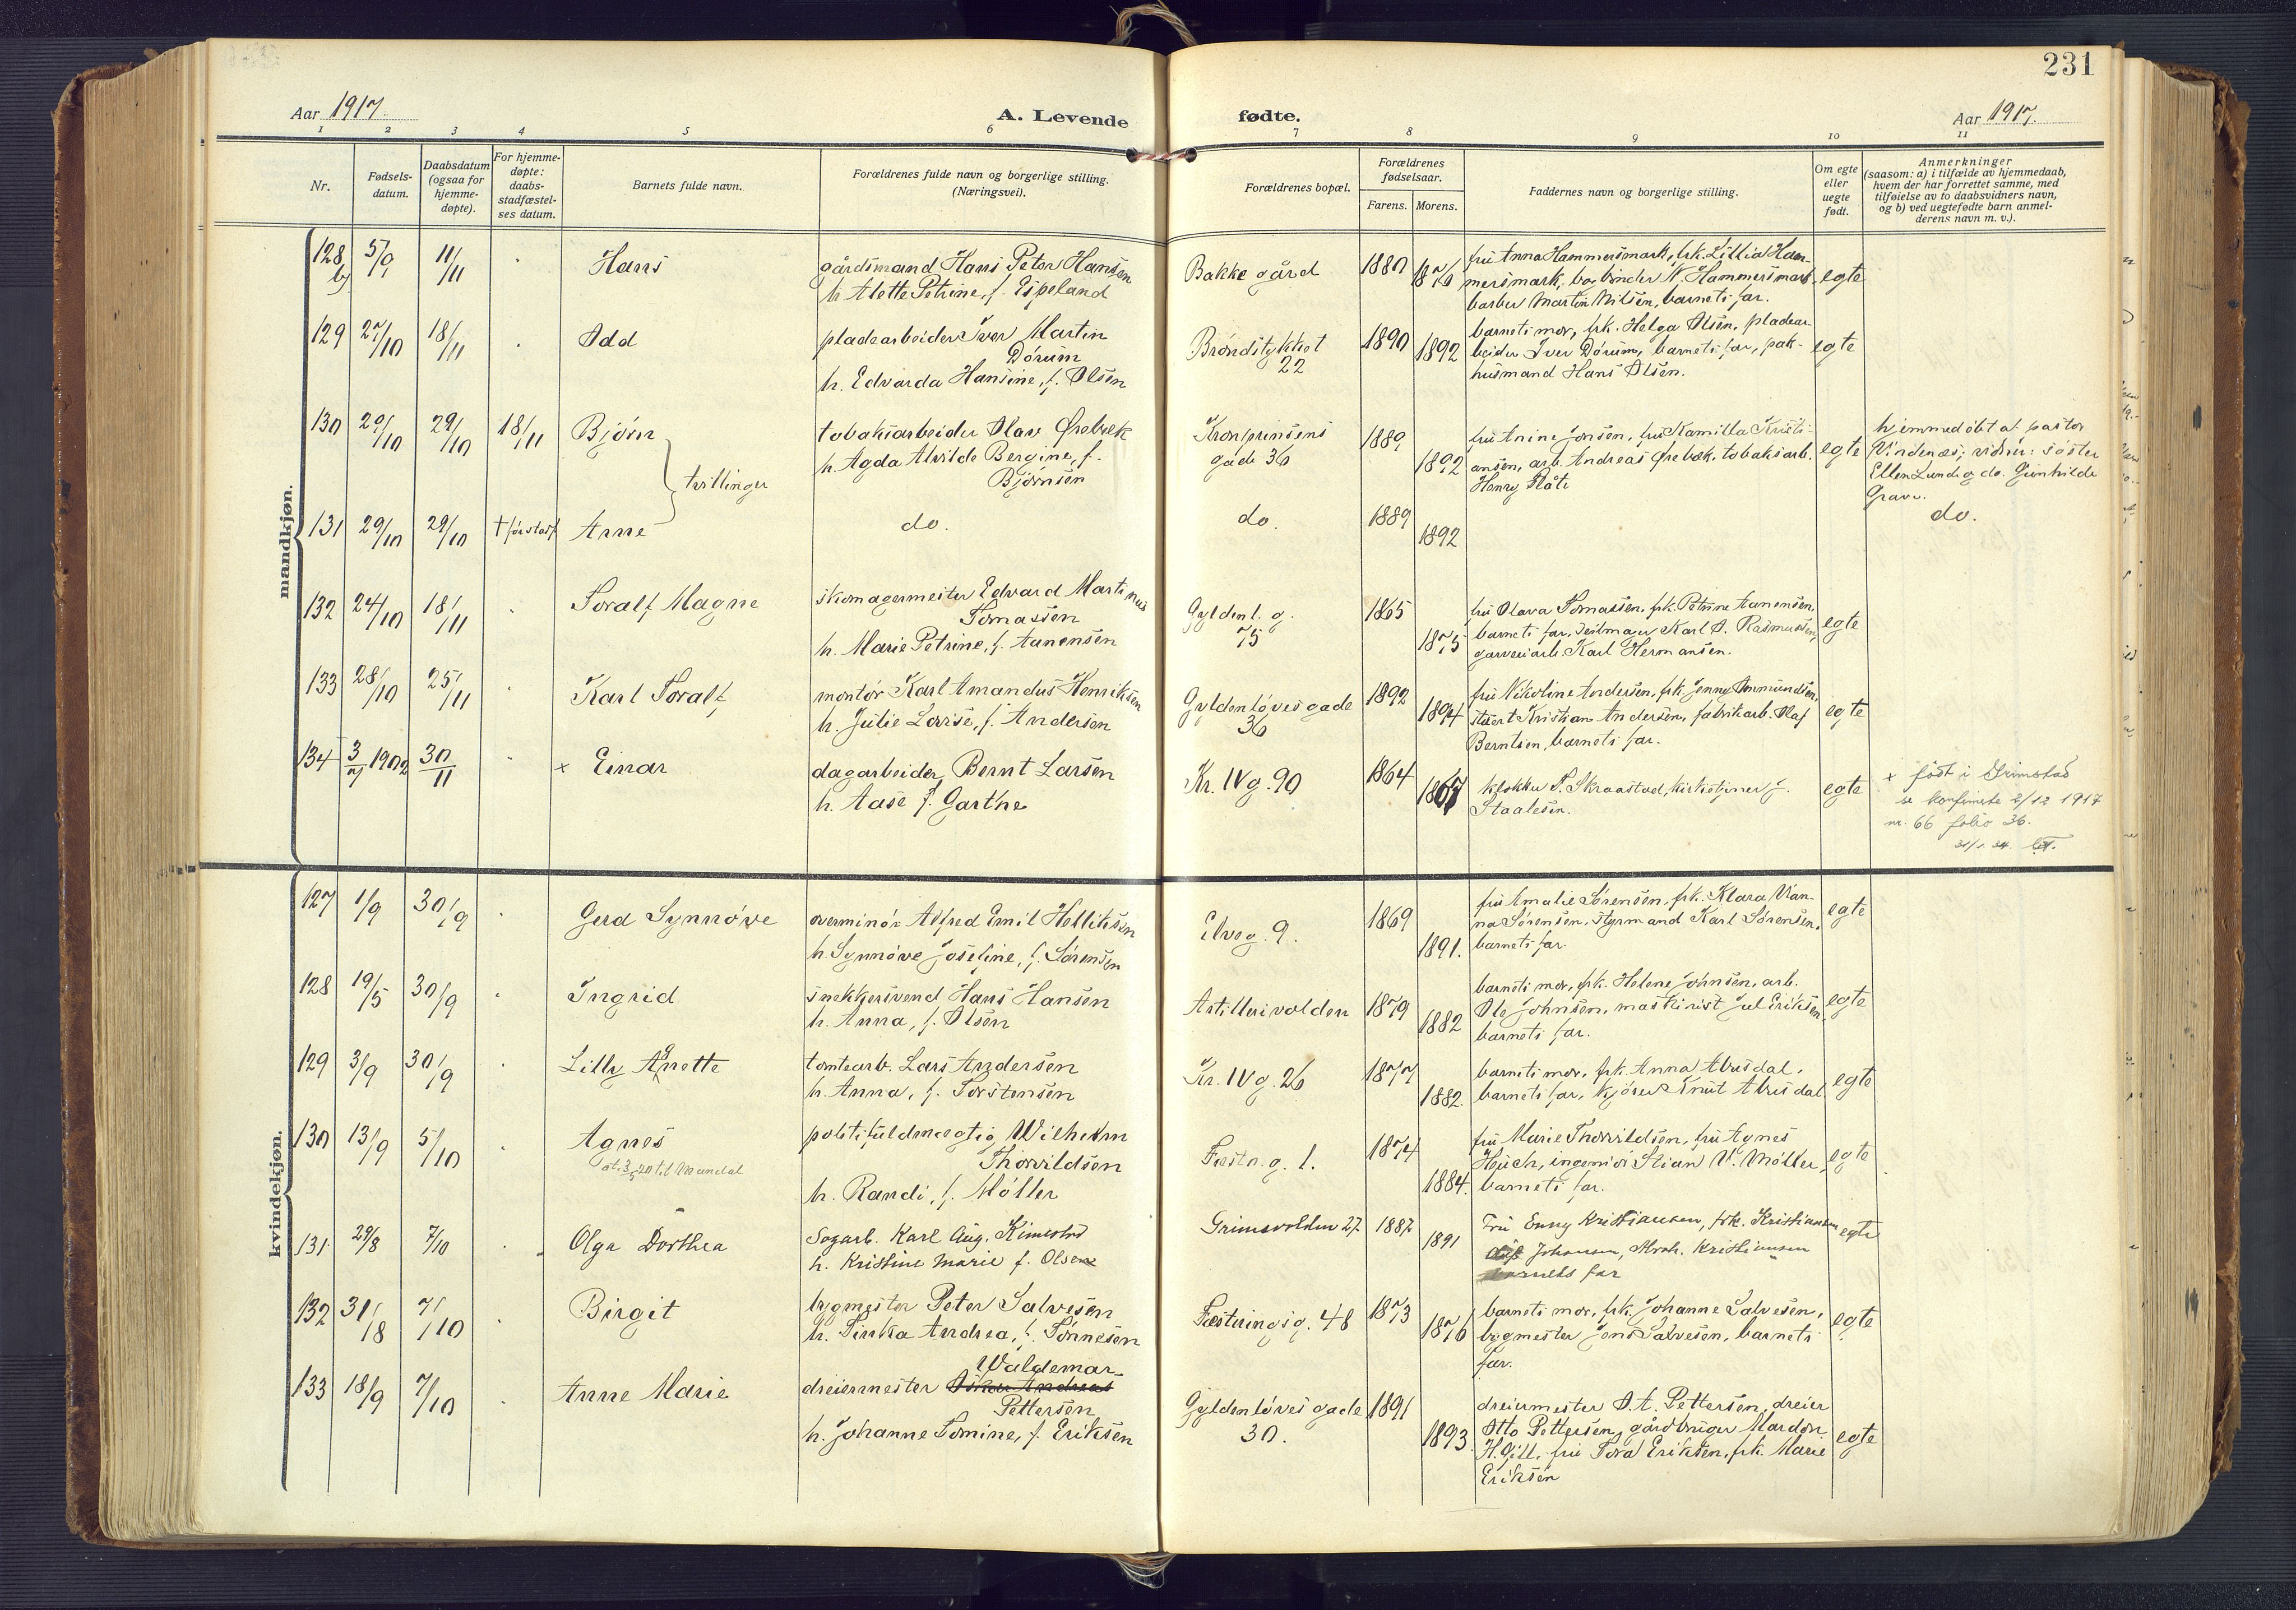 231
Aar 1917.
A. Levende
fødte.
Aar 1917.
1 2 3 4 5 6 7 8 9 10 11
Nr.
Fødsels-
datum.
Daabsdatum
(ogsaa for
hjemme-
døpte).
For hjemme-
døpte:
daabs-
stadfæstel-
ses datum.
Barnets fulde navn.
Forældrenes fulde navn og borgerlige stilling.
(Næringsvei).
Forældrenes bopæl.
Forældrenes
fødselsaar.
Farens. Morens.
Faddernes navn og borgerlige stilling.
Om egte
eller
uegte
født.
Anmerkninger
(saasom: a) i tilfælde av hjemmedaab,
hvem der har forrettet samme, med
tilføielse av to daabsvidners navn,
og b) ved uegtefødte barn anmel-
derens navn m. v.).
mandkjøn.
128 b) 5/9 11/11 Hans
gårdsmand Hans Peter Hansen
h. Alette Petrine, f. Espeland
Bakke gård 1880 1876
fru Anna Hammersmark, frk. Lillia Ham-
mersmark, bogbinder N. Hammersmark,
barber Martin Nilsen, barnets far.
egte
129 27/10 18/11 Odd
pladearbeider Iver Martin
Dörum
h. Edvarda Hansine, f. Olsen
Bröndstykket
22
1890 1892
barnets mor, frk. Helga Olsen, pladear-
beider Iver Dörum, barnets far, pak-
husmand Hans Olsen.
egte
130 29/10 29/10 18/11 Björn
tvillinger
tobaksarbeider Olav Örebæk
h. Agda Alvilde Bergine, f.
Björnsen
Kronprinsens
gade 36
1889 1892
fru Anine Jonsen, fru Kamilla Kristi-
ansen, arb. Andreas Örebæk, tobaksarb.
Henry Flåte
egte
hjemmedöbt af pastor
Vindenæs; vidner: söster
Ellen Lund og do. Gunhilde
Grave.
131 29/10 29/10 † för stadf. Arne
do.
do. 1889 1892
do.
132 24/10 18/11 Toralf Magne
skomagermester Edvard Martinius
Tomassen
h. Marie Petrine, f. Aanensen
Gyldenl. g.
75
1865 1875
fru Olava Tomassen, frk. Petrine Aanensen,
barnets far, seilmager Karl O. Rasmussen,
garveriarb. Karl Hermansen.
egte
133 28/10 25/11 Karl Toralf
montör Karl Amandus Henriksen
h. Julie Lovise, f. Andersen
Gyldenlövesgade
36
1892 1894
fru Nikoline Andersen, frk. Jenny Ommundsen,
stuert Kristian Andersen, fabrikarb. Olaf
Berntsen, barnets far.
egte
134 3/7 1902 30/11 × Einar
dagarbeider Bernt Larsen
h. Aase f. Garthe
Kr. IV g. 90 1864 1867
klokker T. Skraastad, kirketjener J.
Staalesen.
egte
× født i Grimstad
se konfirmerte 2/12 1917
nr. 66 folio 36.
kvindekjøn.
127 1/9 30/9 Gerd Synnöve
overminör Alfred Emil Helliksen
h. Synnöve Josefine, f. Sörensen
Elveg. 9. 1869 1891.
fru Amalie Sörensen, frk. Klara Nan-
na Sörensen, styrmand Karl Sörensen,
barnets far.
egte
128 19/5 30/9 Ingrid
snekkersvend Hans Hansen
h. Anna, f. Olsen
Artillerivolden 1879 1882
barnets mor, frk. Helene Johnsen, arb.
Ole Johnsen, maskinist Jul Eriksen,
barnets far.
egte
129 3/9 30/9 Lilly Anette
tomtearb. Lars Andersen
h. Anna, f. Torstensen
Kr. IV g. 26 1877 1882.
barnets mor, frk. Anna Abusdal,
barnets far, kjörer Knut Abusdal
egte
130 13/9 5/10 Agnes
at. 3/5 20 til Mandal
politifuldmægtig Wilhelm
Thorvildsen
h. Randi, f. Möller
Fæstn. g. 1. 1874 1884.
fru Marie Thorvildsen, fru Agnes
Heuch, ingeniör Stian N. Möller,
barnets far.
egte
131 29/8 7/10 Olga Dorthea
Sogarb. Karl Aug. Kimestad
h. Kristine Marie f. Olsen
Grimsvolden 27. 1887 1891
Fru Enny Kristiansen, frk. Kristiansen
Johansen, Abrah. Kristiansen
barnets far
egte
132 31/8 7/10 Birgit
bygmester Peter Salvesen
h. Tinka Andrea, f. Tönnesen
Fæstningsg. 48 1873 1876
barnets mor, frk. Johanne Salvesen,
bygmester Jens Salvesen, barnets
far.
egte
133 18/9 7/10 Anne Marie
Waldemar
dreiermester Oskar Andreas
Pettersen
h. Johanne Tomine, f. Eriksen
Gyldenlövesgade
30.
1891 1893
dreiermester O. A. Pettersen, dreier
Otto Pettersen, gårdbruger Mardon
H. Gill, fru Tora Eriksen, frk. Marie
Eriksen
egte